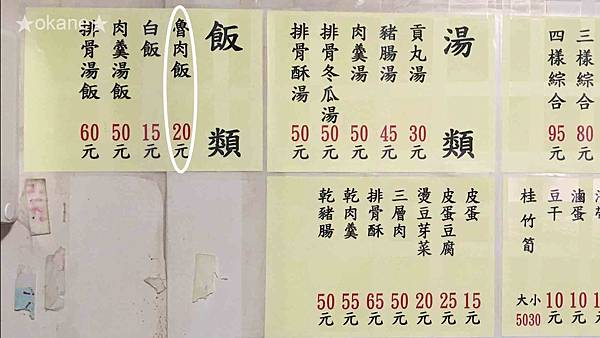 ★okane★
飯類
魯肉飯 20元
白飯 15元
肉羹湯飯 50元
排骨湯飯 60元
湯類
貢丸湯 30元
豬腸湯 45元
肉羹湯 50元
排骨冬瓜湯 50元
排骨酥湯 50元
三樣綜合 80元
四樣綜合 95元
皮蛋 15元
皮蛋豆腐 25元
燙豆芽菜 20元
三層肉 50元
排骨酥 65元
乾肉羹 55元
乾豬腸 50元
滷蛋 10元
豆干 10元
桂竹筍 大小 5030 元